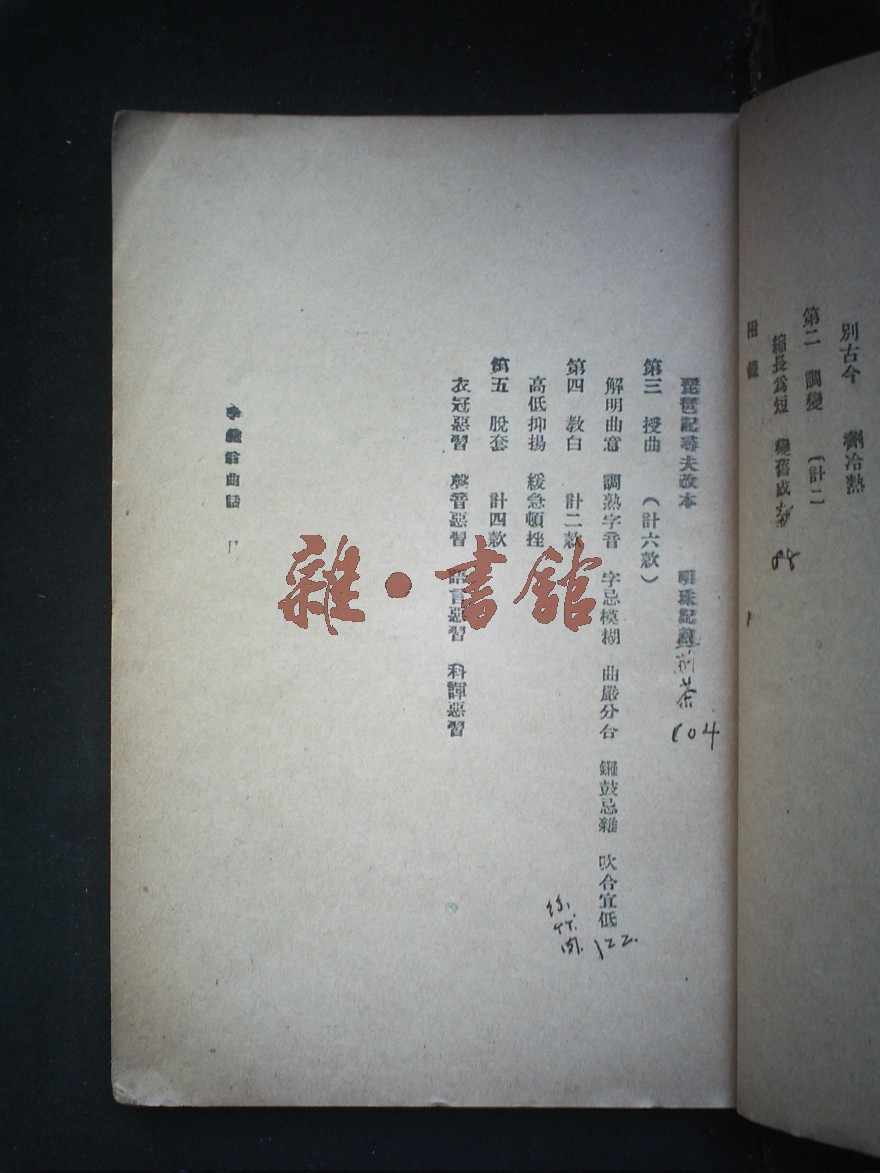 別古今　劑冷熱
第二　調變　(計二
縮長爲短　變舊成新
附錄
琵琶記尋夫改本　明珠記煎茶 104
第三　授曲　(計六款)
解明曲意　調熟字音　字忌模糊　曲嚴分合　鑼鼓忌雜　吹合宜低 122.
第四　教白　計二款
高低抑揚　緩急頓挫
第五　脫套　計四款
衣冠惡習　聲音惡習　語言惡習　科諢惡習
李笠翁曲話
雜·書館